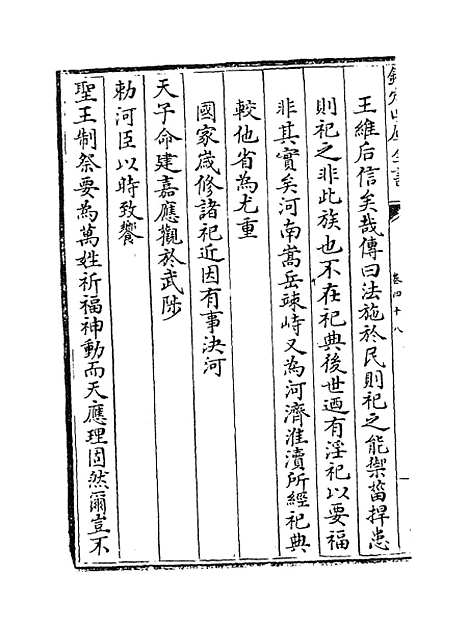 欽定四庫全書
卷四十八
王維后信矣哉傳曰法施於民則祀之能禦菑捍患
則祀之非此族也不在祀典後世迺有淫祀以要福
非其實矣河南嵩岳竦峙又為河濟淮瀆所經祀典
較他省為尤重
國家歲修諸祀近因有事決河
天子命建嘉應觀於武陟
勅河臣以時致饗
聖王制祭要為萬姓祈福神動而天應理固然爾豈不